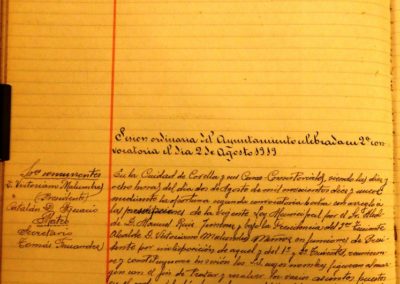 Sesion ordinaria del Ayuntamiento celebrada en 2ª con
vocatoria el dia 2 de Agosto 1919
Sres concurrentes
D. Victoriano Malumbres
(Presidente)
Catalán D. Ignacio
Secretario
Tomás Fernandez
En la Ciudad de Corella y sus Casas Consistoriales, siendo las diez y
ocho horas del dia dos de Agosto de mil novecientos diez y nueve
mediante la oportuna segunda convocatoria hecha con arreglo á
las prescripciones de la vigente Ley Municipal por el Sr. Alcal
D. Manuel Ruiz Jimenez, y bajo la Presidencia del Teniente
Alcalde D. Victoriano Malumbres en funciones de Presi
dente por indisposicion de aquel y del 1º y 2º Tenientes, reunieron
y constituyeron la sesion los Srs que figuran al mar
gen con el fin de tratar y resolver los varios asuntos puestos